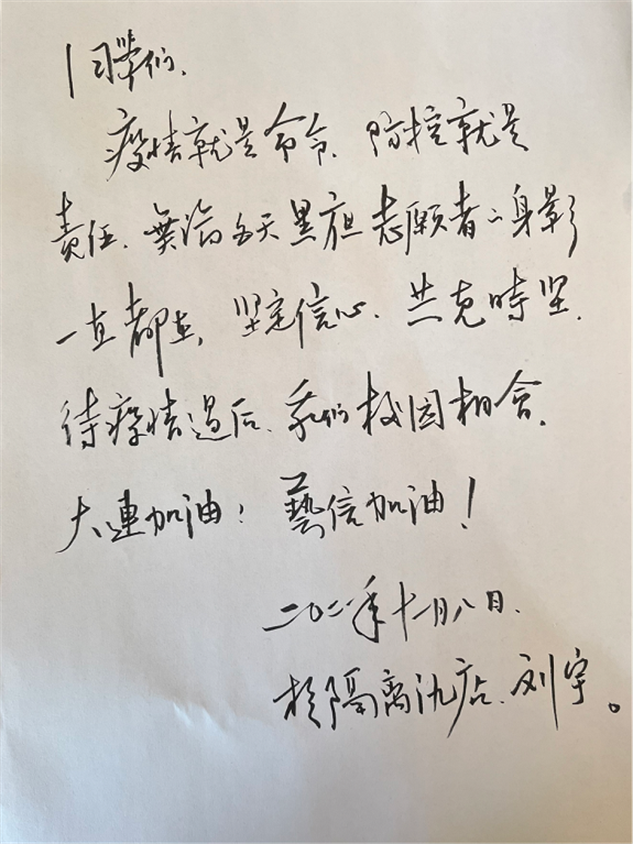 同學们,
疫情就是命令、防控就是
责任、無論白天黑夜志愿者的身影
一直都在, 坚定信心、共克時坚.
待疫情過后、我们校园相會.
大連加油! 藝信加油!
二〇二一年十一月八日.
於隔離酒店、刘宇。